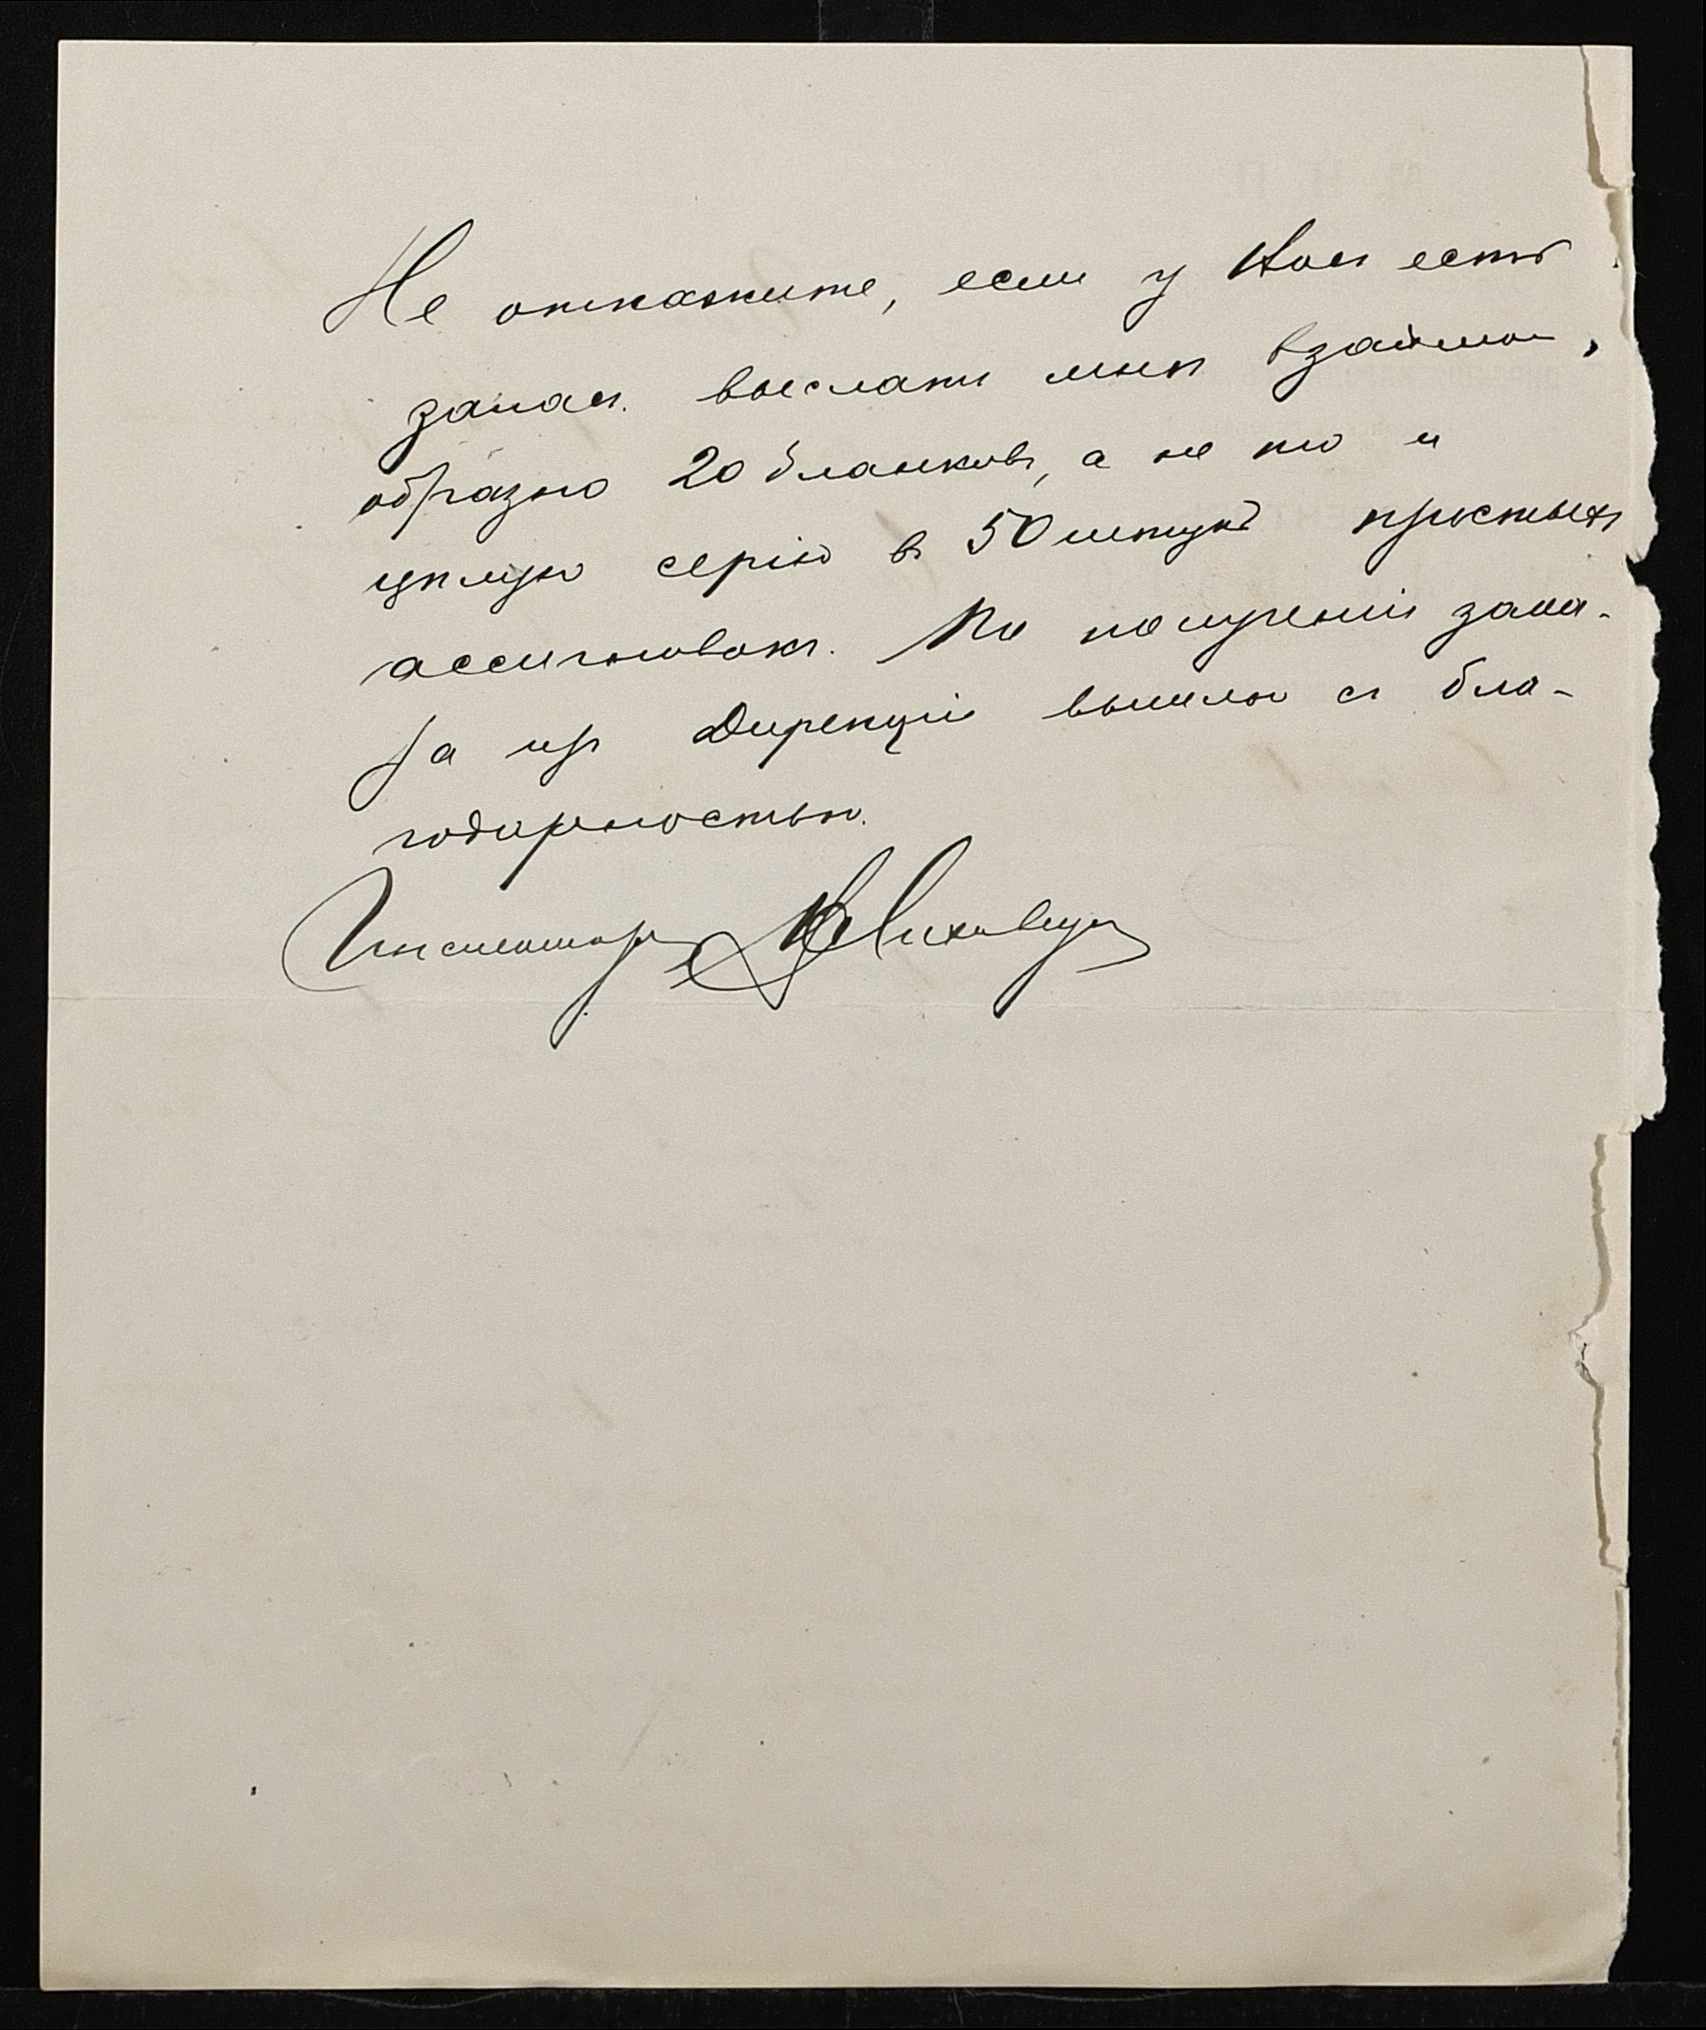 Не откажите, если у Вас есть
запас. выслать мнѣ взаимо-
образно 20 бланковъ, а не то и
цѣлую серію въ 50 штукъ простыхъ
ассигновокъ. По полученіи запа-
са изъ Дирекціи вышлю съ бла-
годарностью.
Инспекторъ